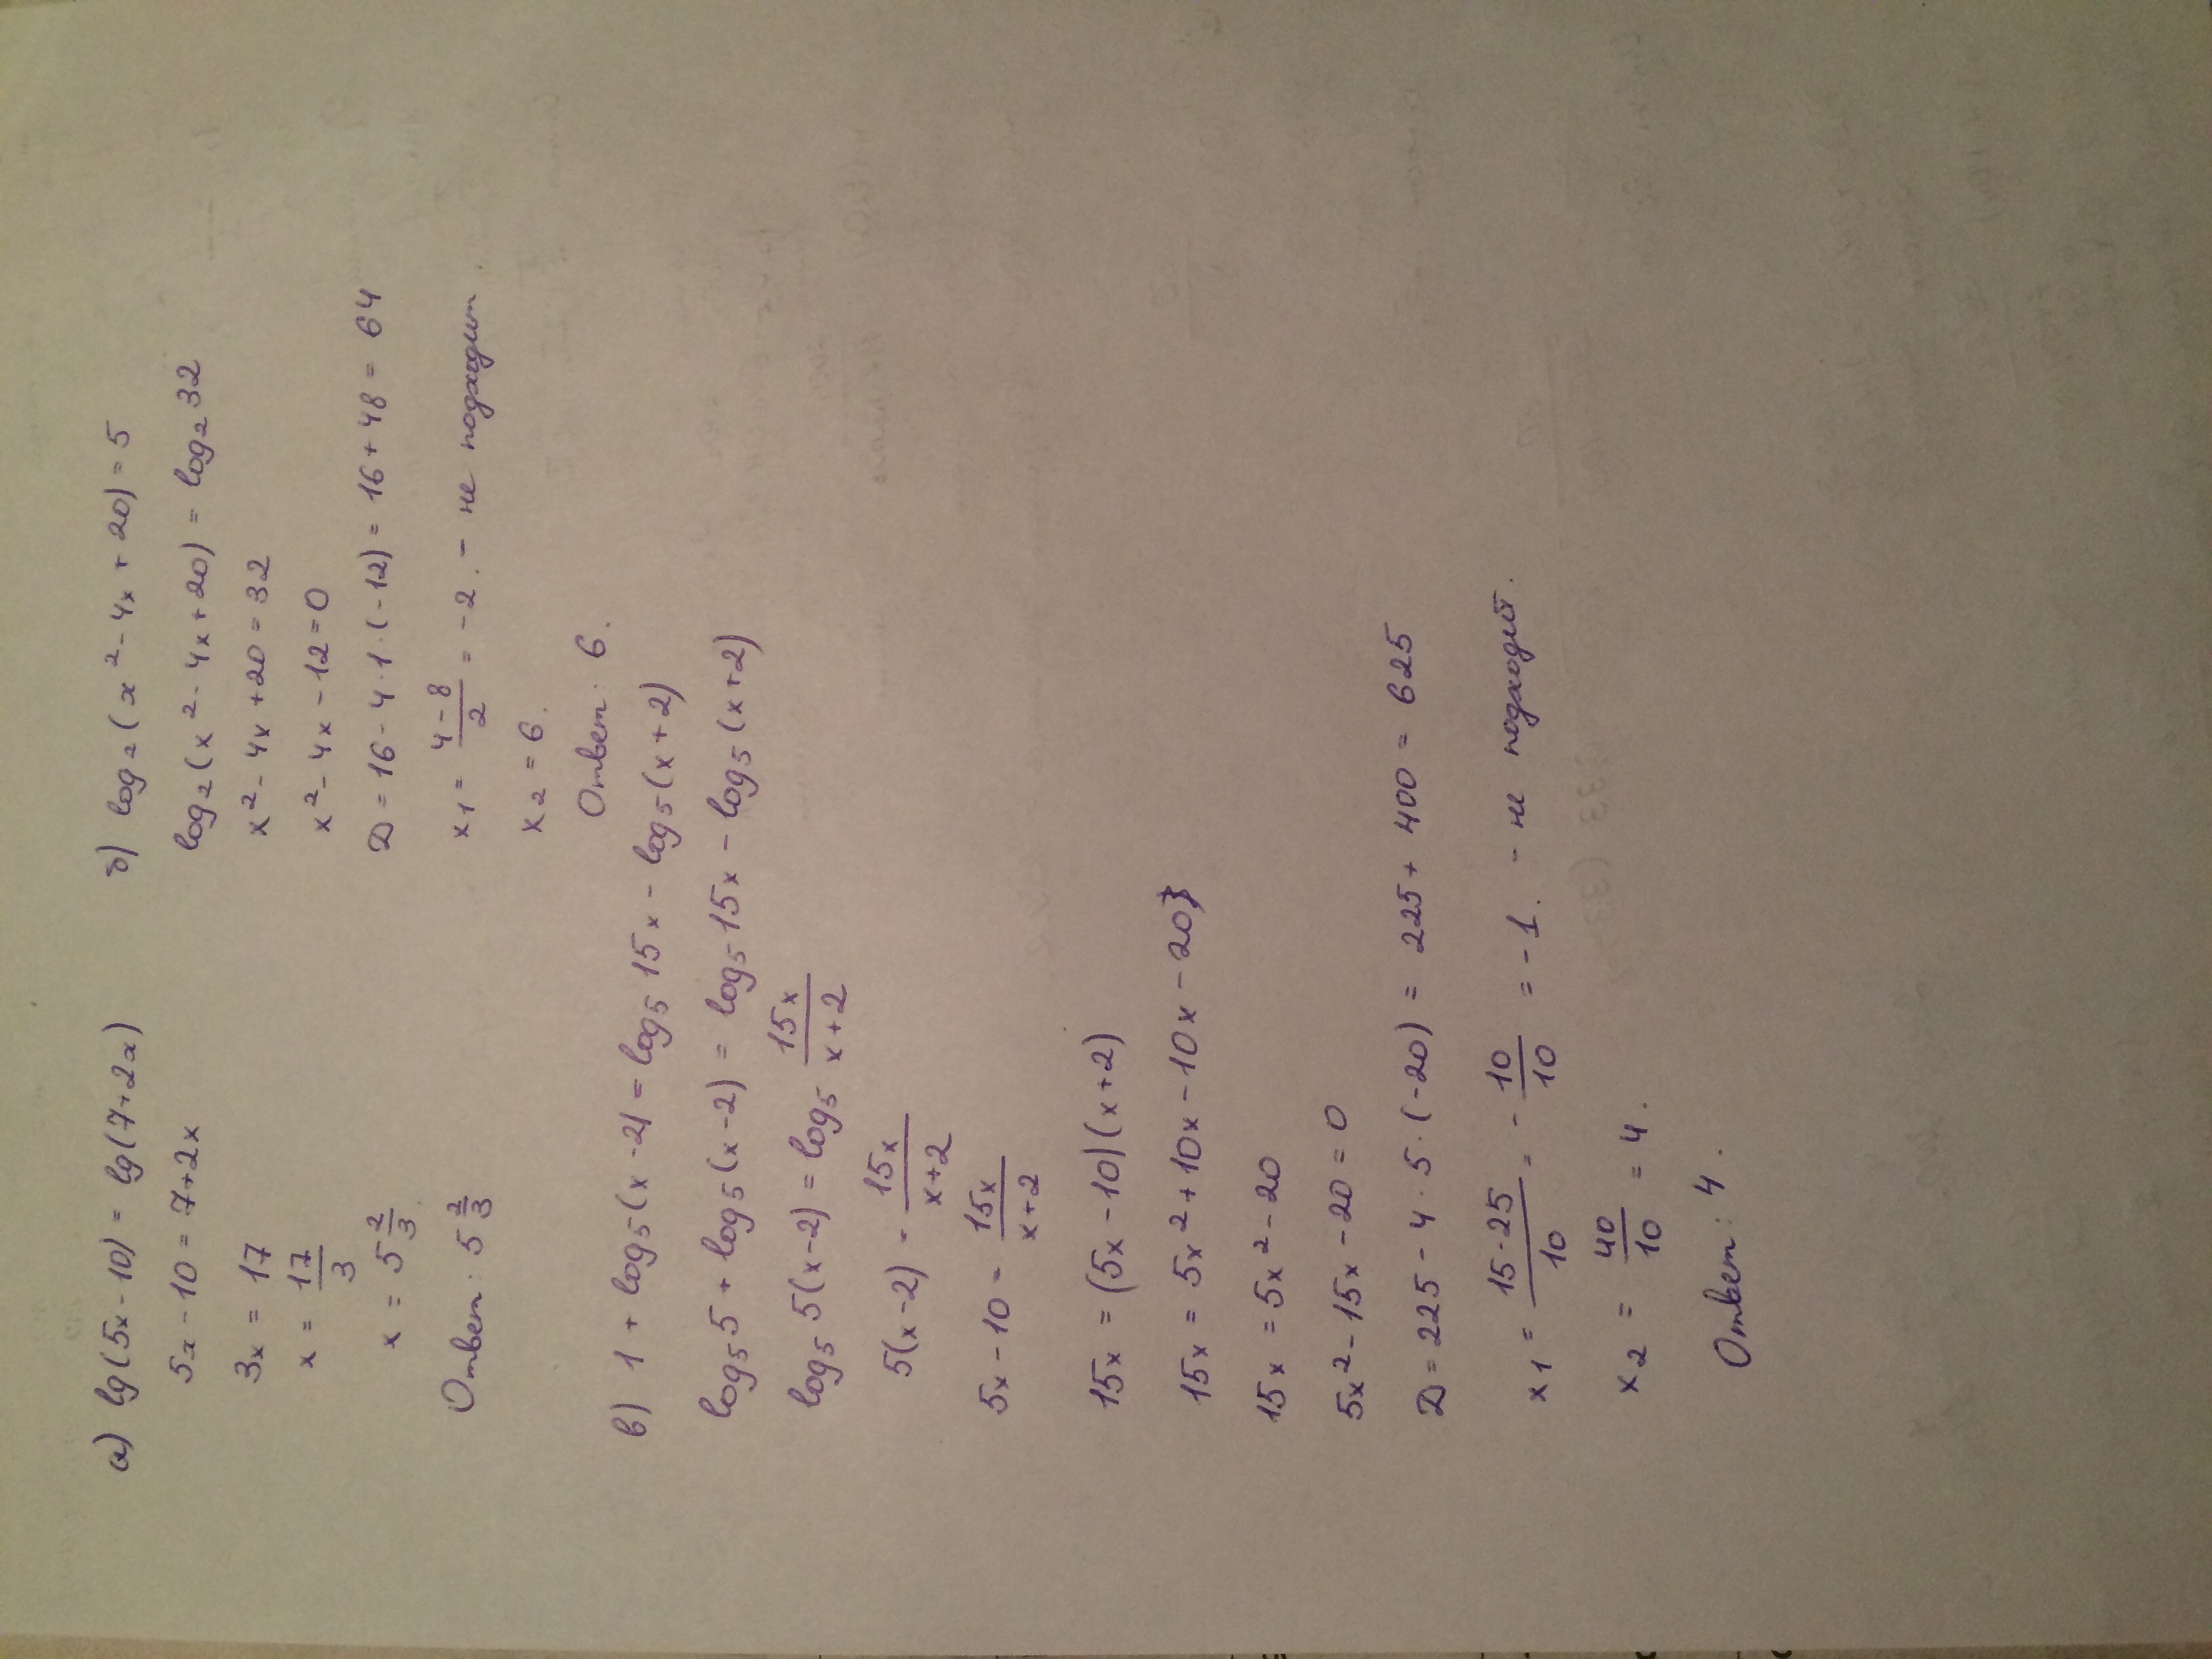 а) lg(5x-10) = lg(7+2x)
5x-10 = 7+2x
3x = 17
x = 17/3
x = 5 2/3
Ответ: 5 2/3
б) log₂(x²-4x+20)=5
log₂(x²-4x+20) = log₂32
x²-4x+20=32
x²-4x-12=0
D=16-4·1·(-12)=16+48=64
x₁ = (4-8)/2 = -2. - не подходит.
x₂ = 6.
Ответ: 6.
в) 1+log₅(x-2) = log₅15x - log₅(x+2)
log₅5+log₅(x-2) = log₅15x - log₅(x+2)
log₅5(x-2) = log₅ 15x/(x+2)
5(x-2) - 15x/(x+2)
5x-10 - 15x/(x+2)
15x = (5x-10)(x+2)
15x = 5x²+10x-10x-20
15x = 5x²-20
5x²-15x-20=0
D=225-4·5·(-20) = 225+400 = 625
x₁ = (15-25)/10 = -10/10 = -1. - не подходит.
x₂ = 40/10 = 4.
Ответ: 4.